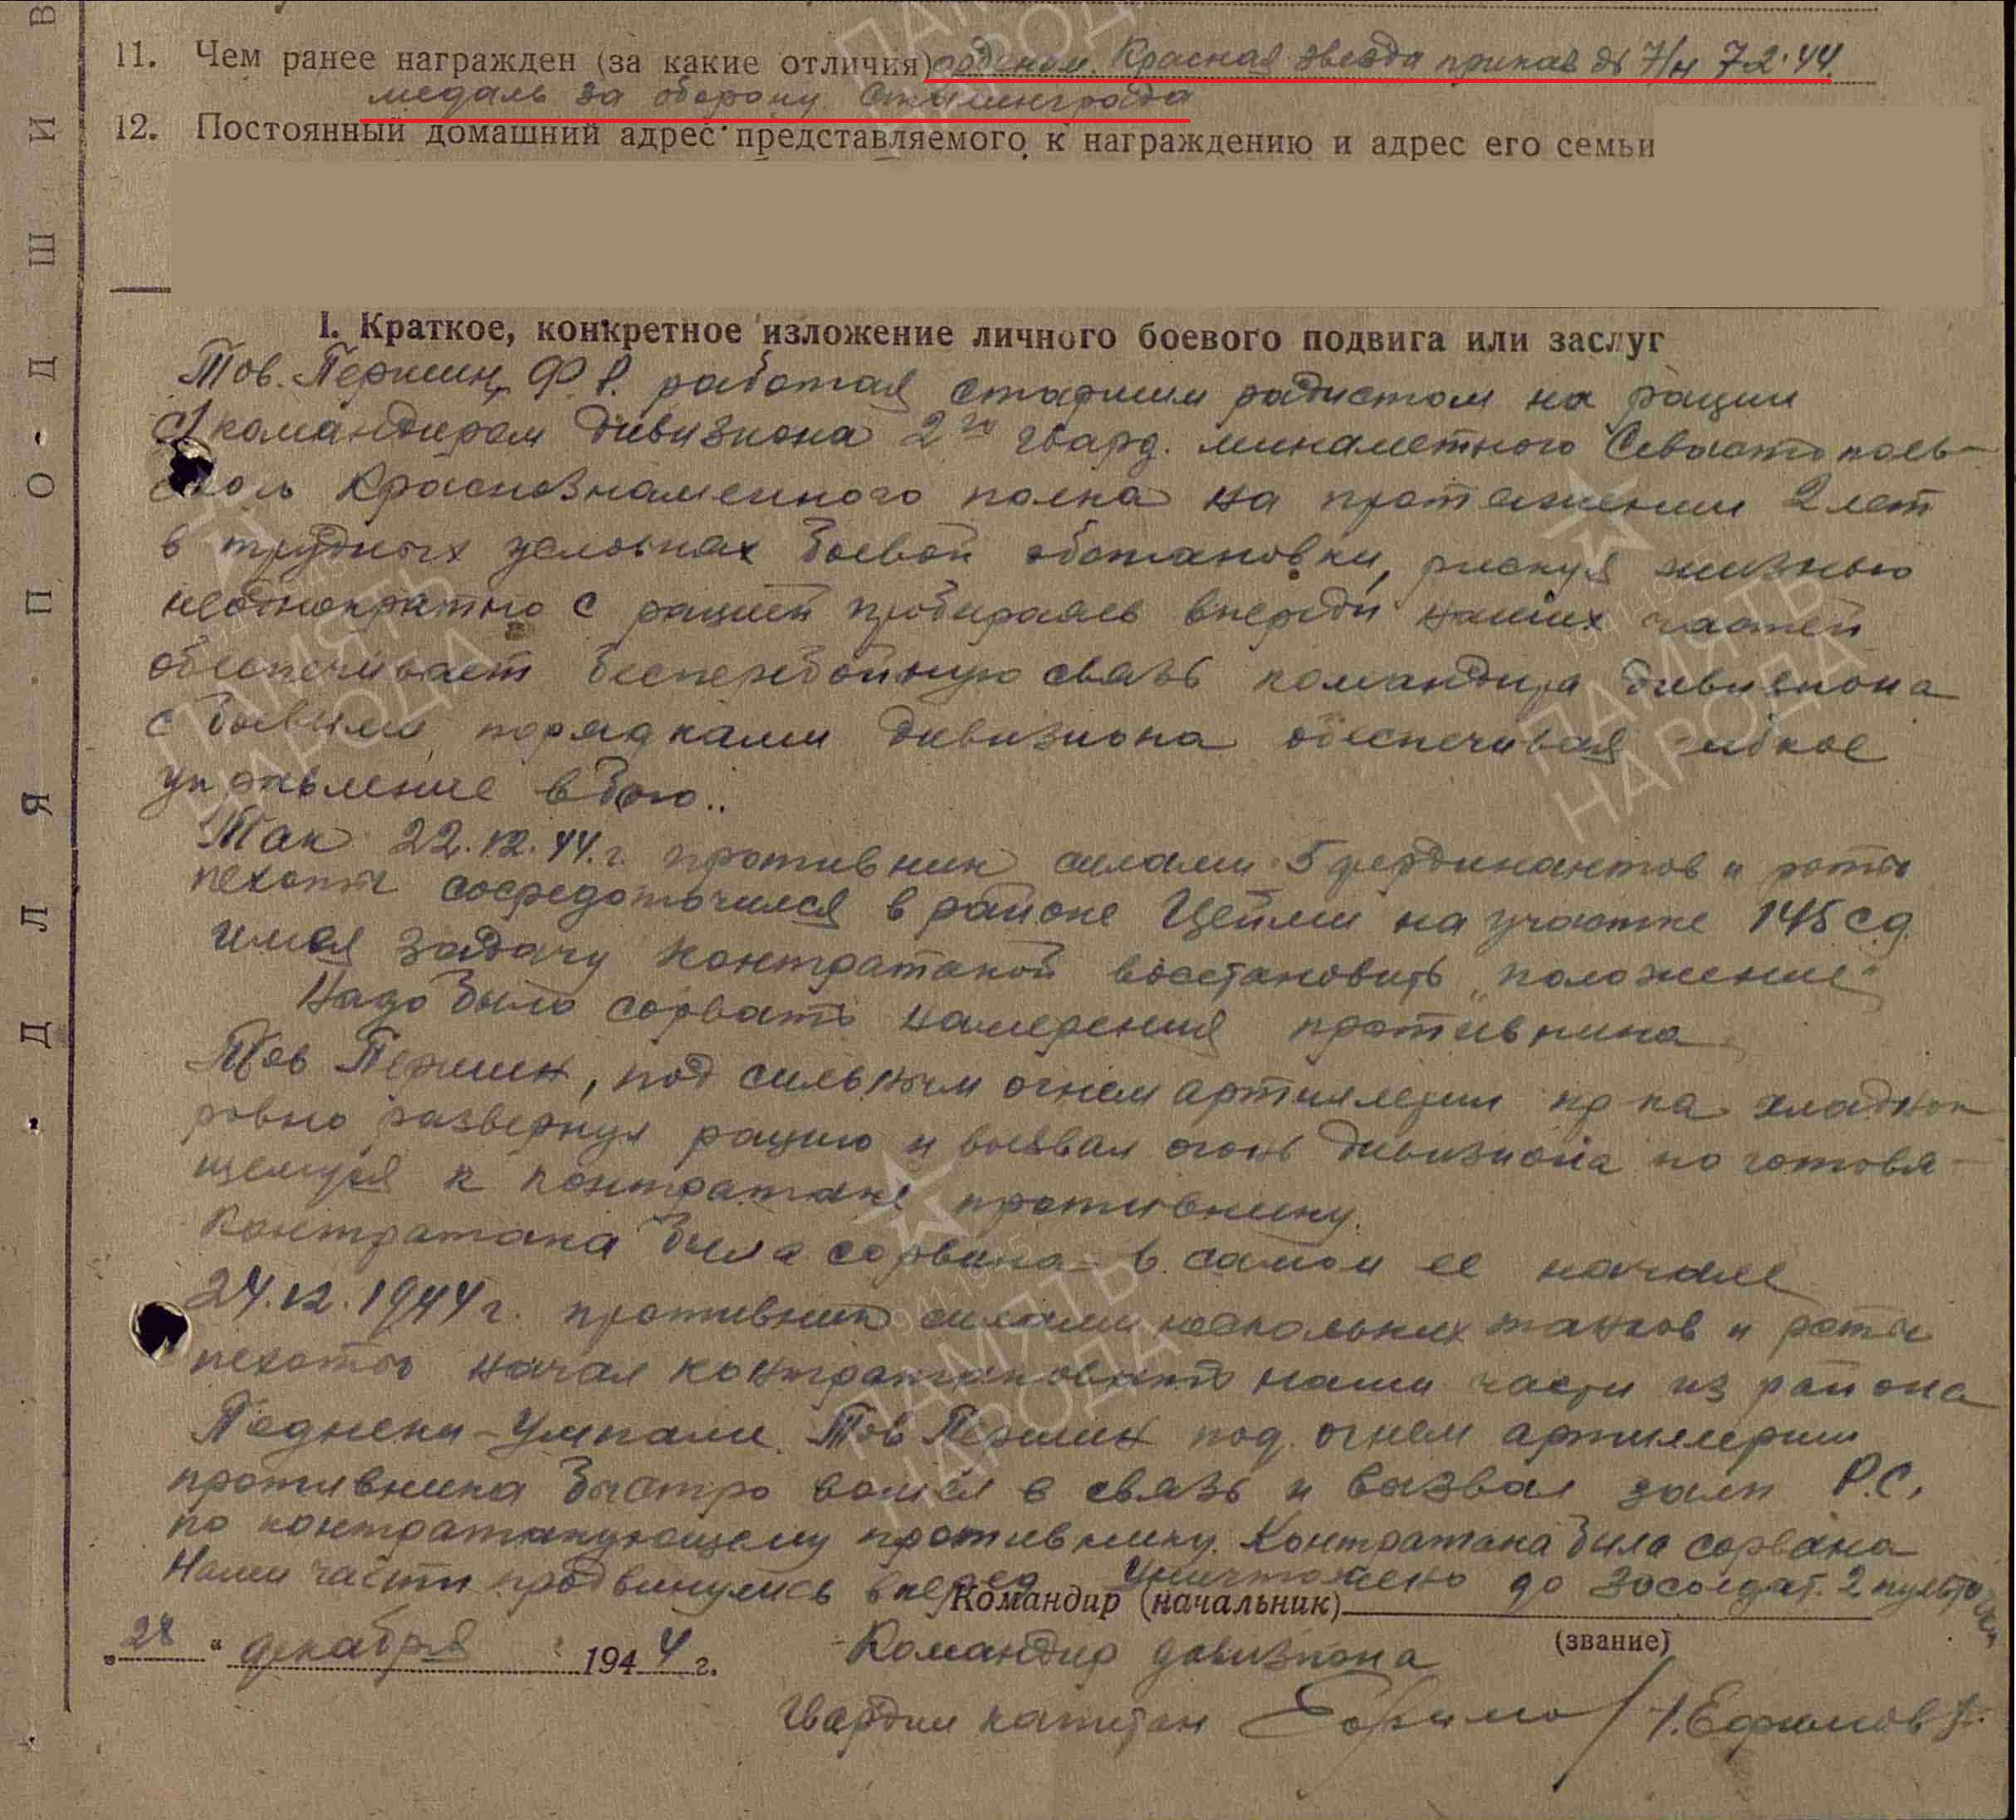 11. Чем ранее награжден (за какие отличия) орденом Красная звезда приказ № 7/н 7 2.44.
медаль за оборону Сталинграда
12. Постоянный домашний адрес представляемого к награждению и адрес его семьи
I. Краткое, конкретное изложение личного боевого подвига или заслуг
Тов. Першин Ф. работая старшим радистом на рации
командиром дивизиона 2го гвард. минаметного Севастополь-
ского Краснознаменного полка на протяжении 2 лет
в трудных условиях боевой обстановки, рискуя жизнью
неоднократно с рацией пробираясь впереди наших частей
обеспечивает бесперебойную связь командира дивизиона
с боевыми порядками дивизиона обеспечивая гибкое
управление в бою..
Так 22.12.44.г. противник силами 5 фердинантов и роты
пехоты сосредоточился в районе Цейми на участке 145 сд.
имея задачу контратакой восстановить „положение"
Надо было сорвать намерения противника
Тов Першин, под сильным огнем артиллерии пр-ка хладнок
ровно развернул рацию и вызвал огонь дивизиона по готовя-
щемуся к контратаке противнику.
Контратака была сорвана в самом ее начале
24.12.1944г. противник силами нескольких танков и роты
пехоты начал контратаковать наши части из района
Педнеки-Умпали. Тов Першин под огнем артиллерии
противника быстро вошел в связь и вызвал залп Р.С.
по контратакующему противнику. Контратака была сорвана
Наши части продвинулись вперед Уничтожено до 30 солдат. 2 пулето
Командир (начальник)
(звание)
„28" декабря 1944 г.
Командир дивизиона
Гвардии капитан Ефимов /.Ефимов/.
ДЛЯ ПОДШИВ
ПАМЯТЬ
НАРОДА
1941-1945
ПАМЯТЬ
НАРОДА
ПАМЯТЬ
НАРОДА